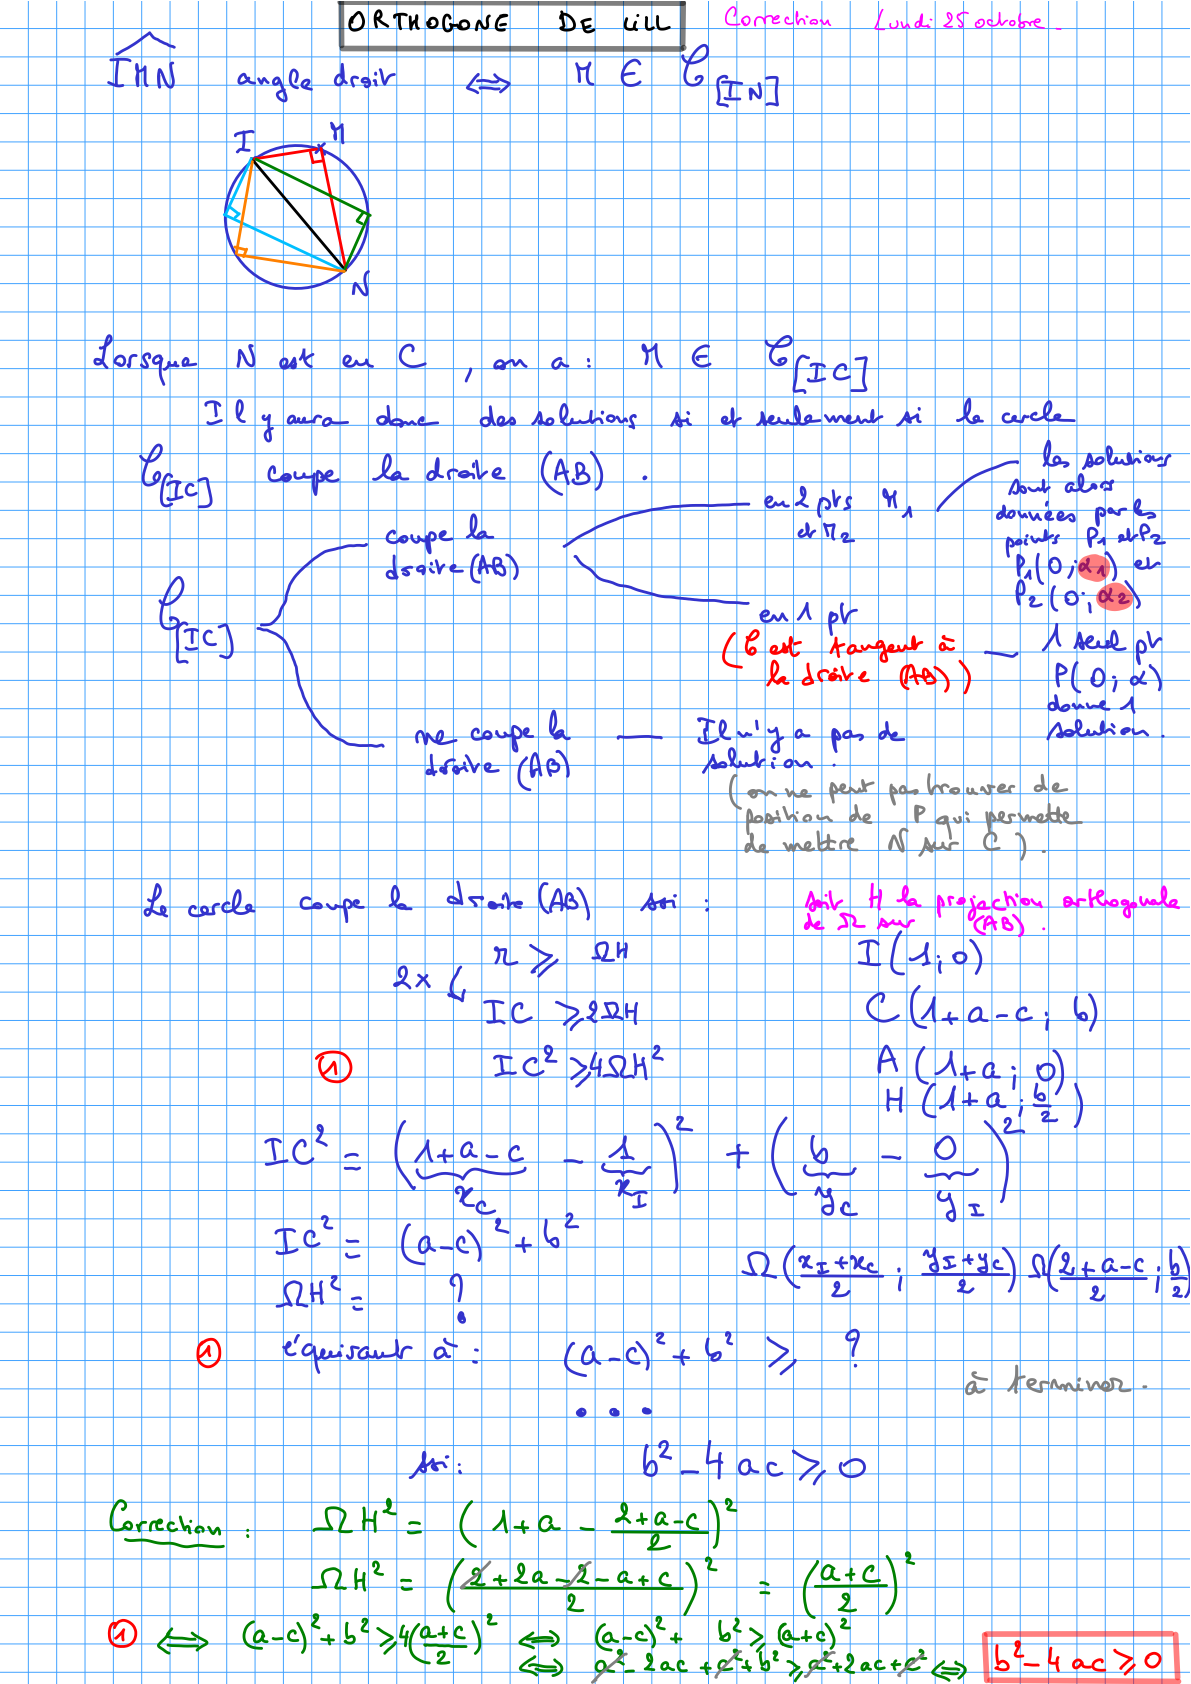 ORTHOGONE DE LILL
Correction Lundi 25 octobre.
IMN angle droit ⟺ M ∈ C[IN]
I M
N
Lorsque N est en C, on a : M ∈ C[IC]
Il y aura donc des solutions si et seulement si le cercle
C[IC] coupe la droite (AB).
C[IC]
coupe la
droite (AB)
en 2 pts M₁
et M₂
les solutions
sont alors
données par les
points P₁ et P₂
P₁(0; α₁) et
P₂(0; α₂)
en 1 pt
(C est tangent à
la droite (AB))
1 seul pt
P(0; α)
donne 1
solution.
ne coupe la
droite (AB)
Il n'y a pas de
solution.
(on ne peut pas trouver de
position de P qui permette
de mettre N sur C).
Le cercle coupe la droite (AB) ssi :
soit H la projection orthogonale
de Ω sur (AB).
r ⩾ ΩH
2×
IC ⩾ 2ΩH
① IC² ⩾ 4ΩH²
I(1; 0)
C(1+a-c; b)
A(1+a; 0)
H(1+a; b/2)
IC² = (1+a-c - 1)² + (b - 0)²
x_C x_I y_C y_I
IC² = (a-c)² + b²
Ω((x_I+x_C)/2; (y_I+y_C)/2) Ω((2+a-c)/2; b/2)
ΩH² = ?
① équivaut à : (a-c)² + b² ⩾ ?
à terminer.
...
ssi : b² - 4ac ⩾ 0
Correction : ΩH² = (1+a - (2+a-c)/2)²
ΩH² = ((2+2a-2-a+c)/2)² = ((a+c)/2)²
① ⟺ (a-c)² + b² ⩾ 4((a+c)/2)² ⟺ (a-c)² + b² ⩾ (a+c)²
⟺ a² - 2ac + c² + b² ⩾ a² + 2ac + c² ⟺ b² - 4ac ⩾ 0